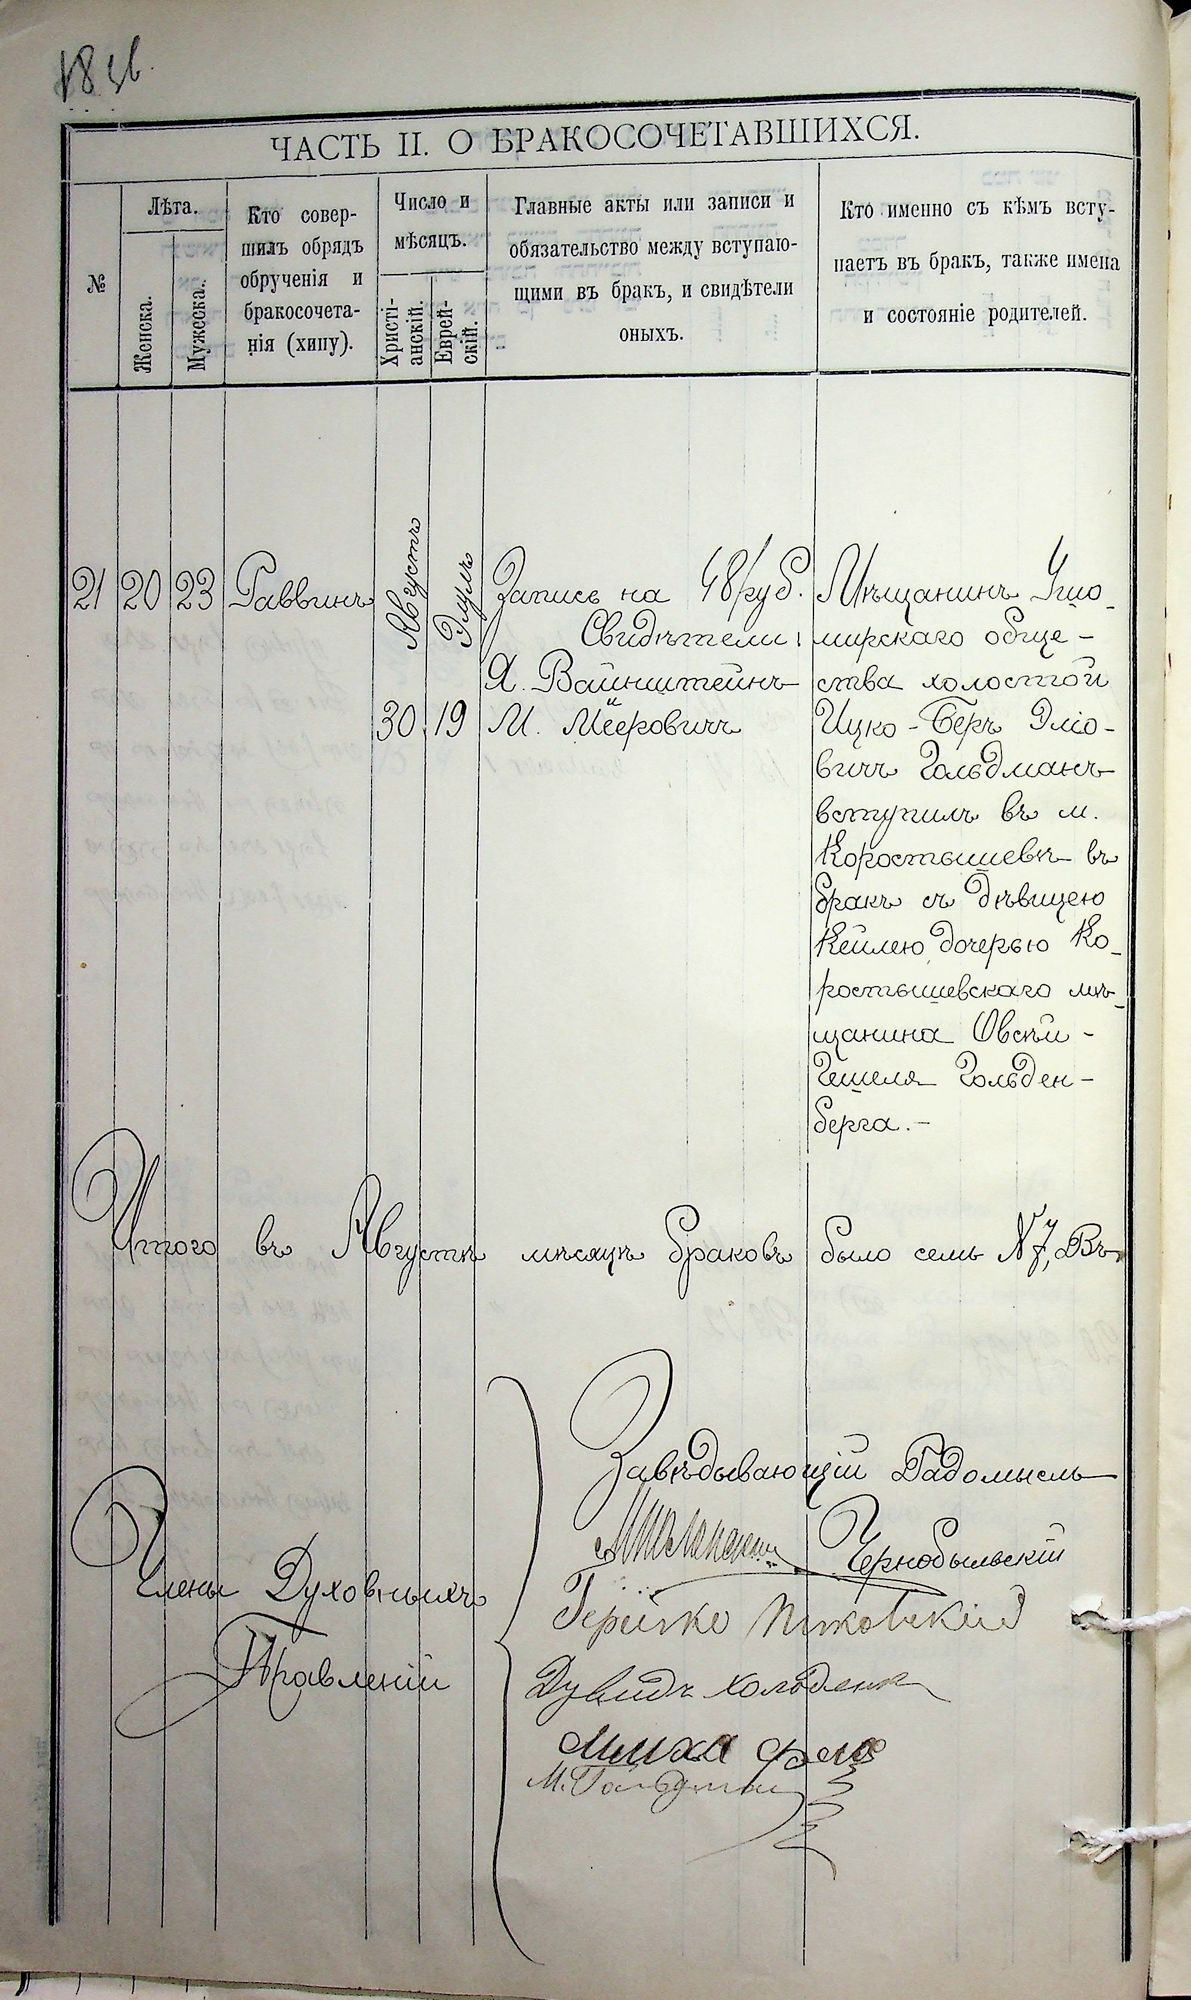 ЧАСТЬ II. О БРАКОСОЧЕТАВШИХСЯ.
№
Лѣта.
Женска.
Мужеска.
Кто совер-
шилъ обрядъ
обрученія и
бракосочета-
нія (хипу).
Число и
мѣсяцъ.
Христі-
анскій.
Еврей-
скій.
Главные акты или записи и
обязательство между вступаю-
щими въ бракъ, и свидѣтели
оныхъ.
Кто именно съ кѣмъ всту-
паетъ въ бракъ, также имена
и состояніе родителей.
21
20
23
Раввинъ
Августъ
30
Элулъ
19
Запись на 48/руб.
Свидѣтели:
Х. Вайнштейнъ
М. Мееровичъ
Мѣщанинъ Ушо-
мирскаго обще-
ства холостой
Ицко-Беръ Эліо-
вичъ Гольдманъ
вступилъ въ м.
Коростышевѣ въ
бракъ съ дѣвицею
Кейлею, дочерью Ко-
ростышевскаго мѣ-
щанина Овсѣй-
Гешеля Гольден-
берга.-
Итого въ Августѣ мѣсяцѣ браковъ было семь №7, Въ
Завѣдывающій Радомысль
Чернобыльскій
Члены Духовныхъ
Правленій
Дувидъ Холоденк